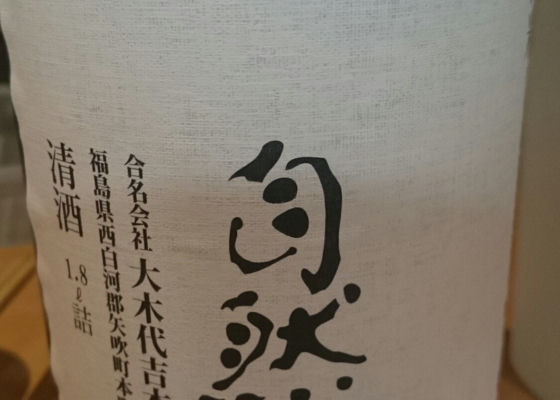 自然
合名会社 大木代吉本
福島県西白河郡矢吹町本
清酒
1.8ℓ詰